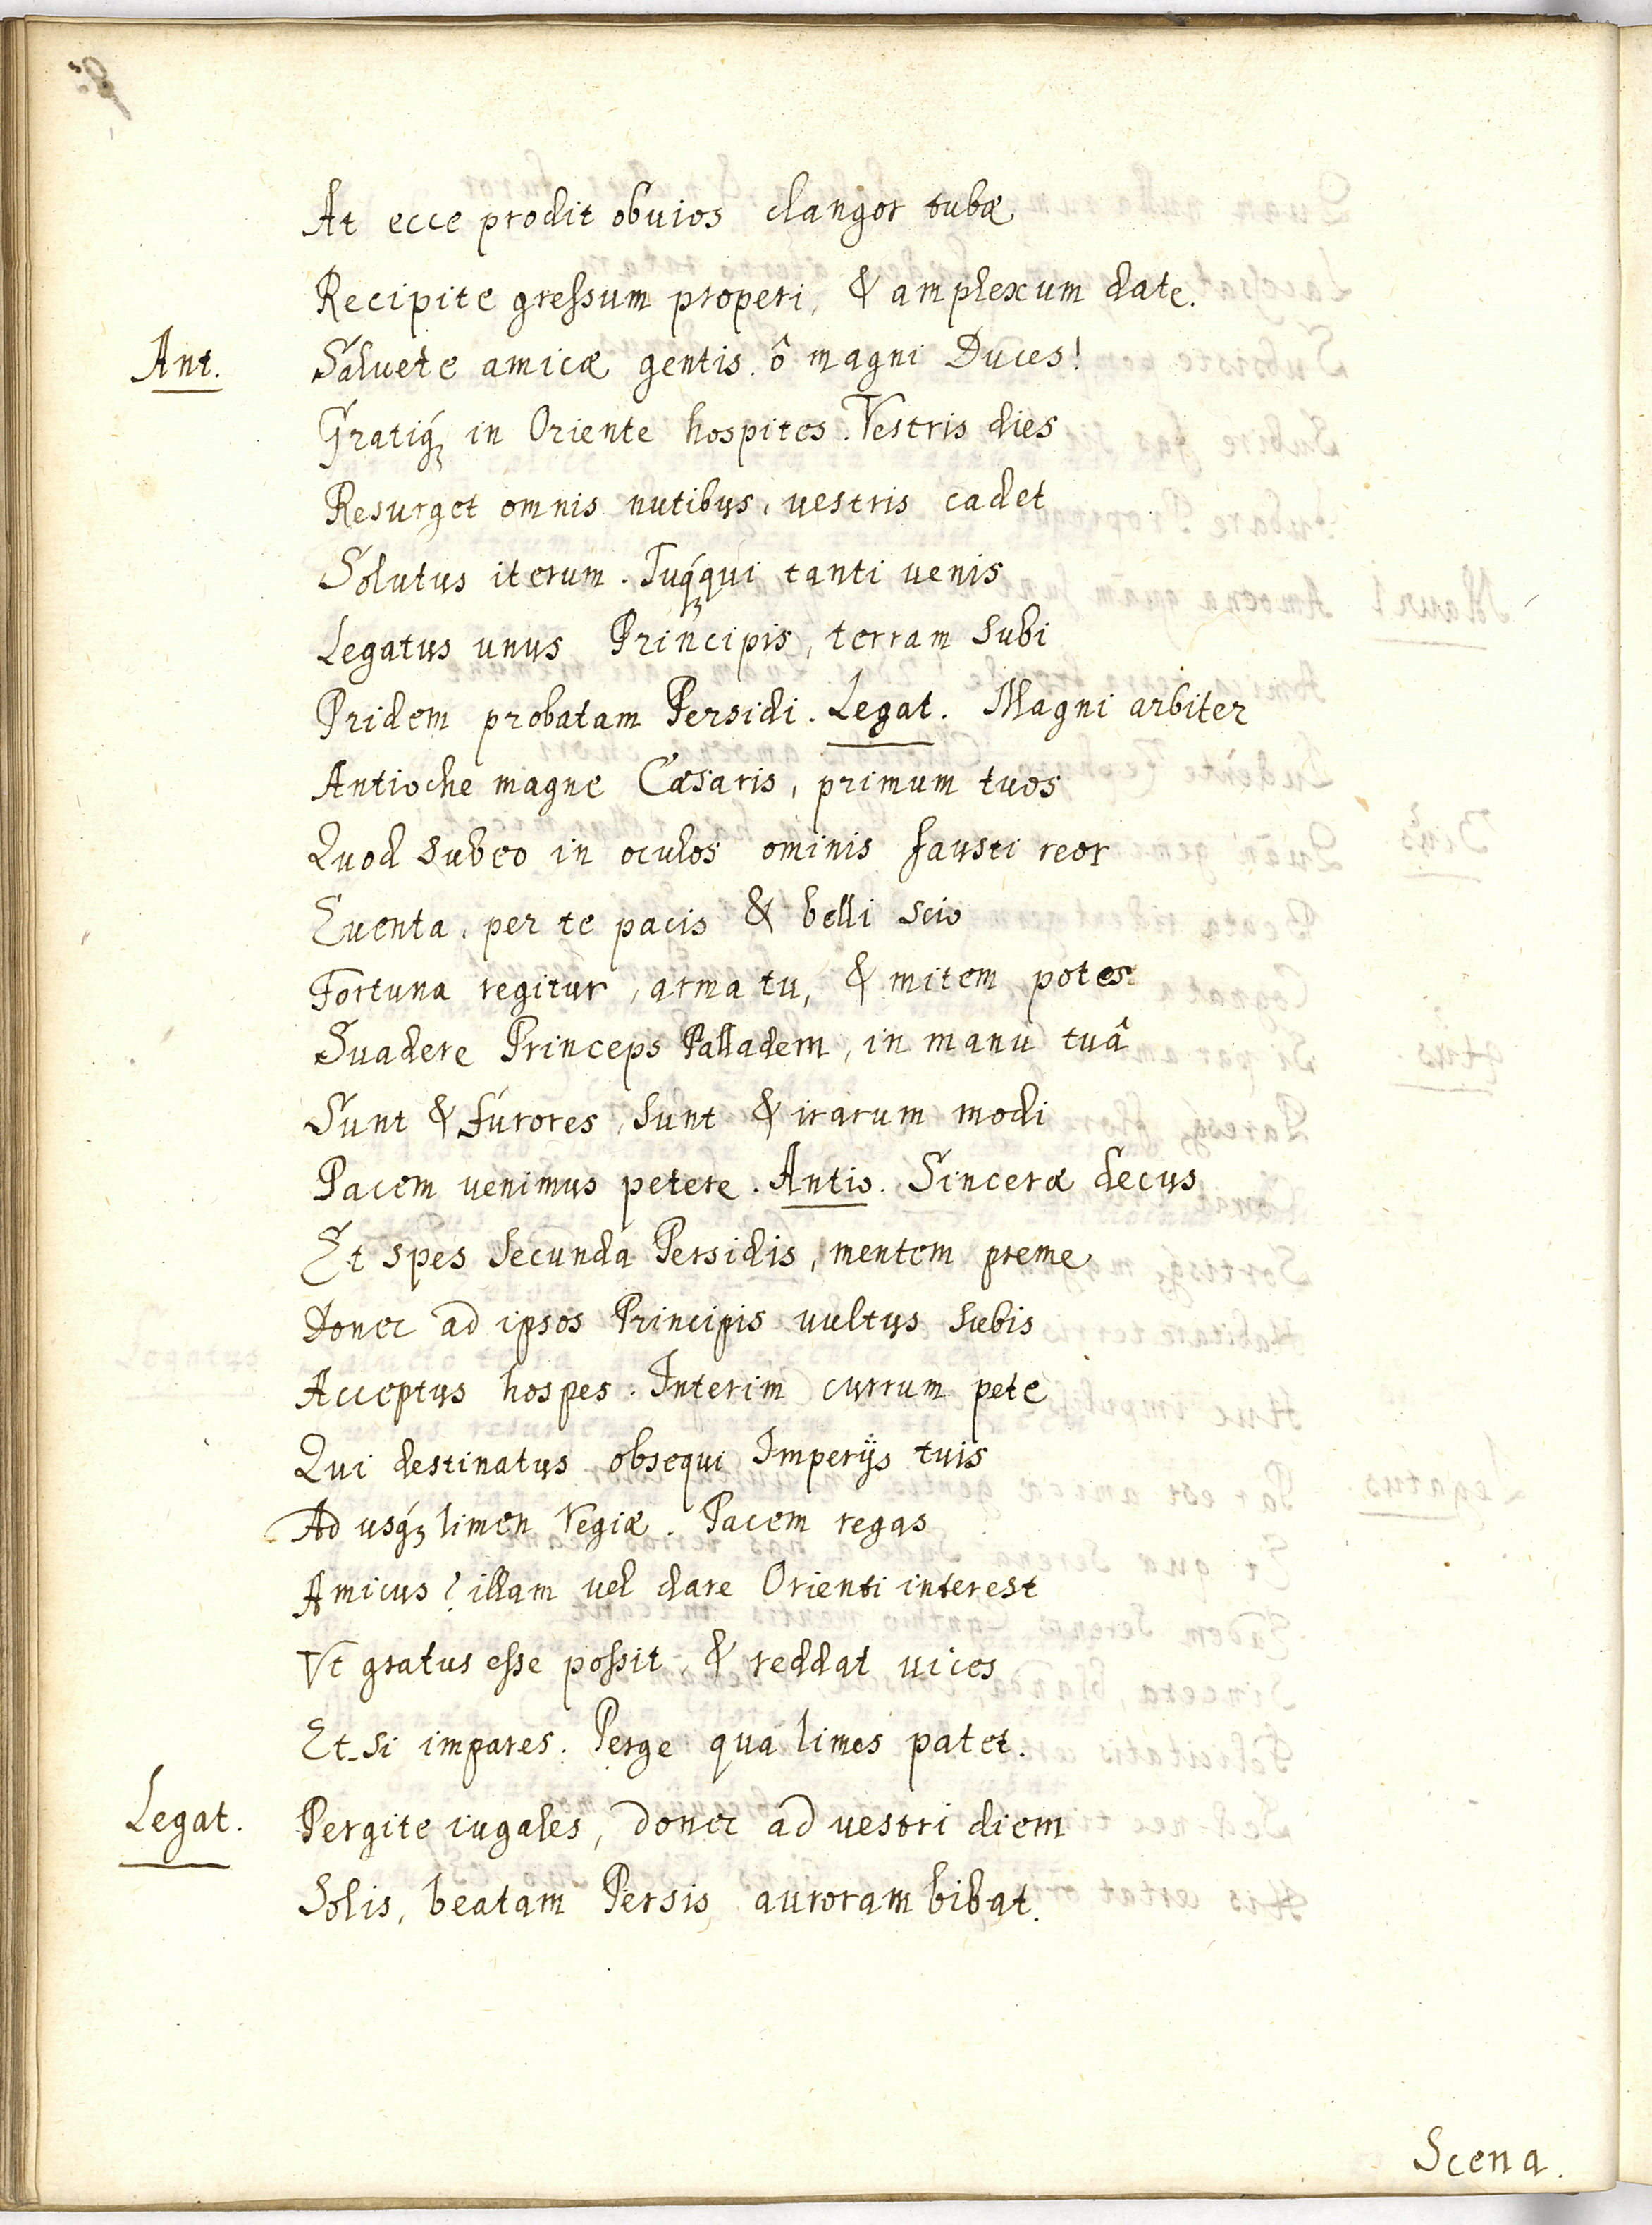 At ecce prodit obvios clangor tubæ
Recipite gressum properi, & amplexum date.
Ant. Salvete amicæ gentis. ô magni Duces!
Gratiq́ꝫ in Oriente hospites. Vestris dies
Resurget omnis nutibus, vestris cadet
Solutus iterum. Tuq́ꝫ qui tanti venis
Legatus unus Principis, terram subi
Pridem probatam Persidi. Legat. Magni arbiter
Antioche magne Cæsaris, primum tuos
Quod subeo in oculos ominis fausti reor
Euenta, per te pacis & belli scio
Fortuna regitur, arma tu, & mitem potes
Suadere Princeps Palladem, in manu tuâ
Sunt & furores, sunt & irarum modi
Pacem venimus petere. Antio. Sinceræ decus
Et spes secunda Persidis, mentem preme
Donec ad ipsos Principis vultus subis
Acceptus hospes. Interim currum pete
Qui destinatus obsequi Imperijs tuis
Ad usq́ꝫ limen Regiæ. Pacem regas
Amicus? illam vel dare Orienti interest
Vt gratus esse possit, & reddat vices
Et-si impares. Perge qua limes patet.
Legat. Pergite iugales, donec ad vestri diem
Solis, beatam Persis auroram bibat.
Scena.